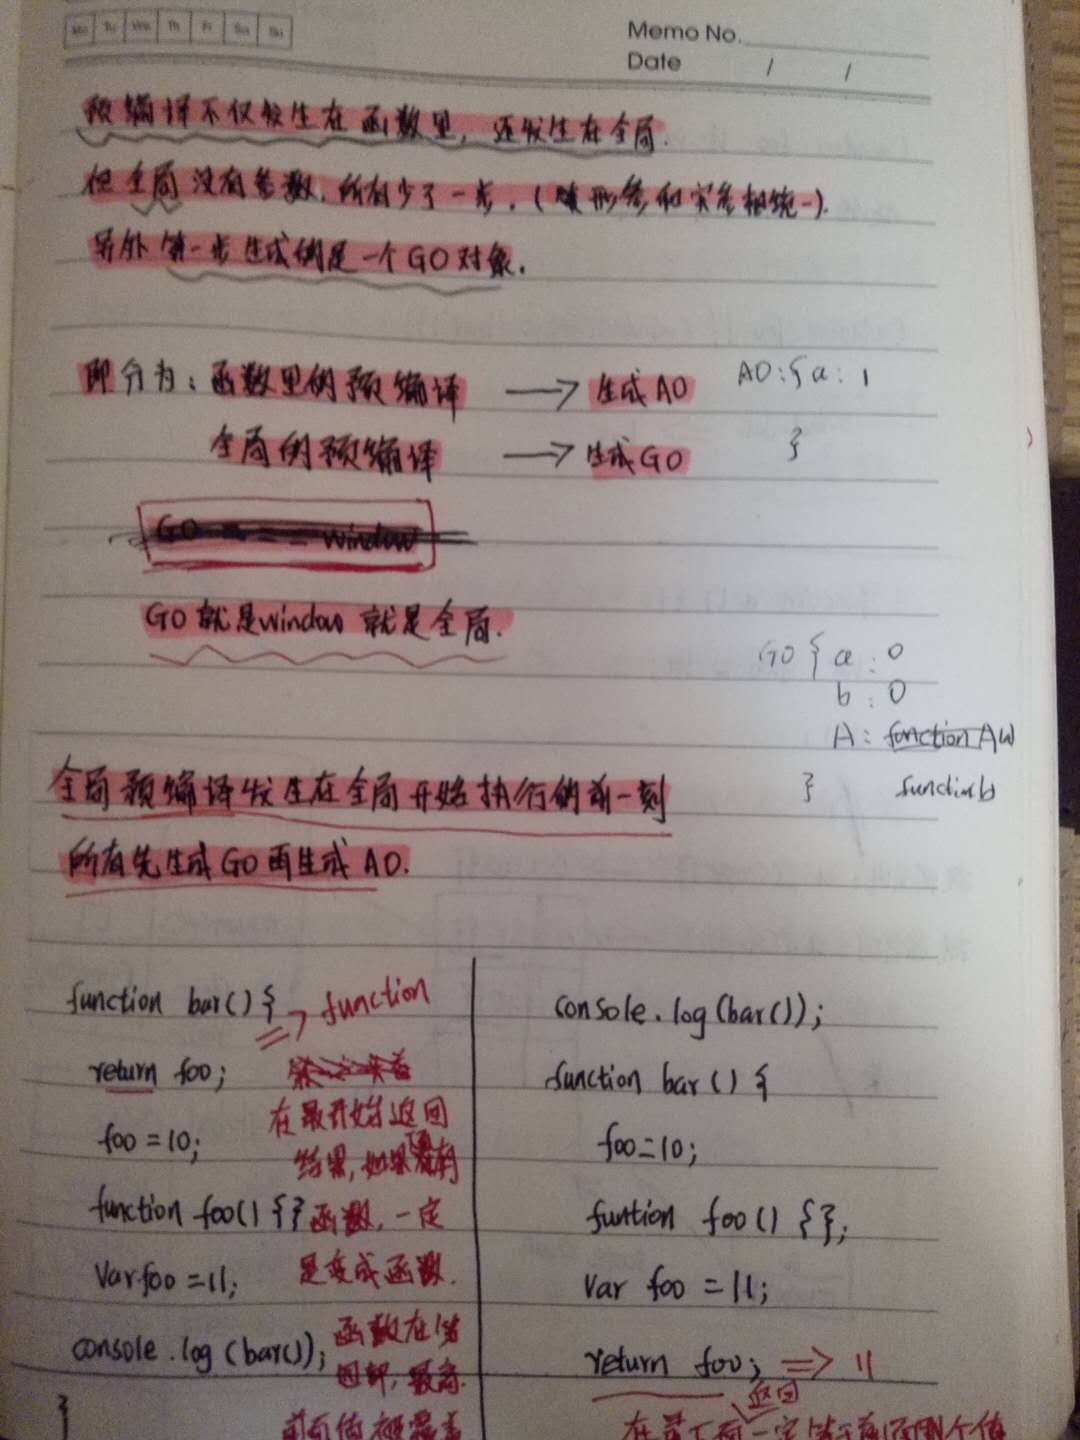 Mo Tu We Th Fr Sa Su
Memo No.
Date / /
预编译不仅发生在函数里，还发生在全局.
但全局没有参数，所有少了一步，(形参和实参相统一).
另外第一步生成的是一个GO对象.
即分为：函数里的预编译 —> 生成AO
AO:{a: 1
}
全局的预编译 —> 生成GO
GO window
GO就是window就是全局.
GO { a : 0
b : 0
A : function A
function b
}
全局预编译发生在全局开始执行的前一刻
所有先生成GO再生成AO.
function bar() { => function
return foo;
foo = 10;
function foo() {}
var foo = 11;
console.log(bar());
}
在最开始返回
结果，如果有
函数，一定
是变成函数.
函数在
最高.
前面值被覆盖
console.log(bar());
function bar() {
foo=10;
funtion foo() {};
var foo = 11;
return foo; => 11
返回
在最下面一定等于前面哪个值